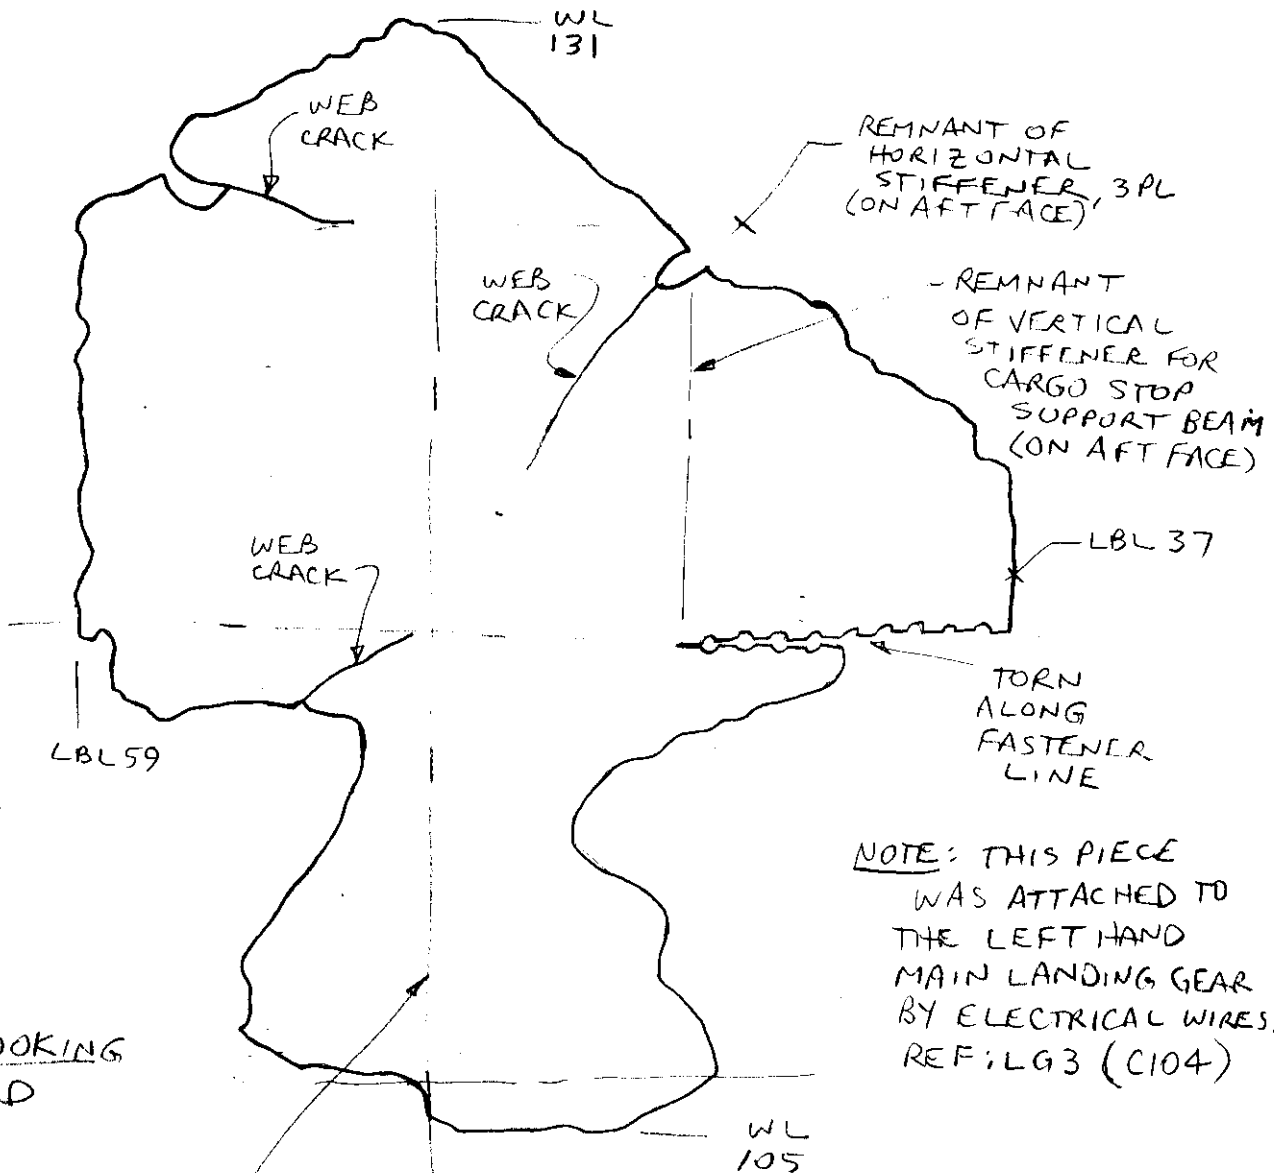 WL
131
WEB
CRACK
REMNANT OF
HORIZONTAL
STIFFENER, 3 PL
(ON AFT FACE)
WEB
CRACK
REMNANT
OF VERTICAL
STIFFENER FOR
CARGO STOP
SUPPORT BEAM
(ON AFT FACE)
LBL 37
WEB
CRACK
TORN
ALONG
FASTENER
LINE
LBL 59
NOTE: THIS PIECE
WAS ATTACHED TO
THE LEFT HAND
MAIN LANDING GEAR
BY ELECTRICAL WIRES.
REF: LG3 (C104)
OOKING
D
WL
105